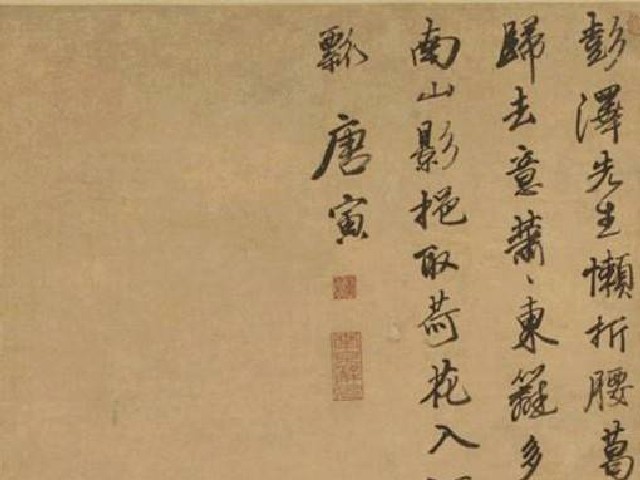 彭澤先生懶折腰葛
歸去意蕭〻東籬多
南山影挹取荷花入
瓢 唐寅